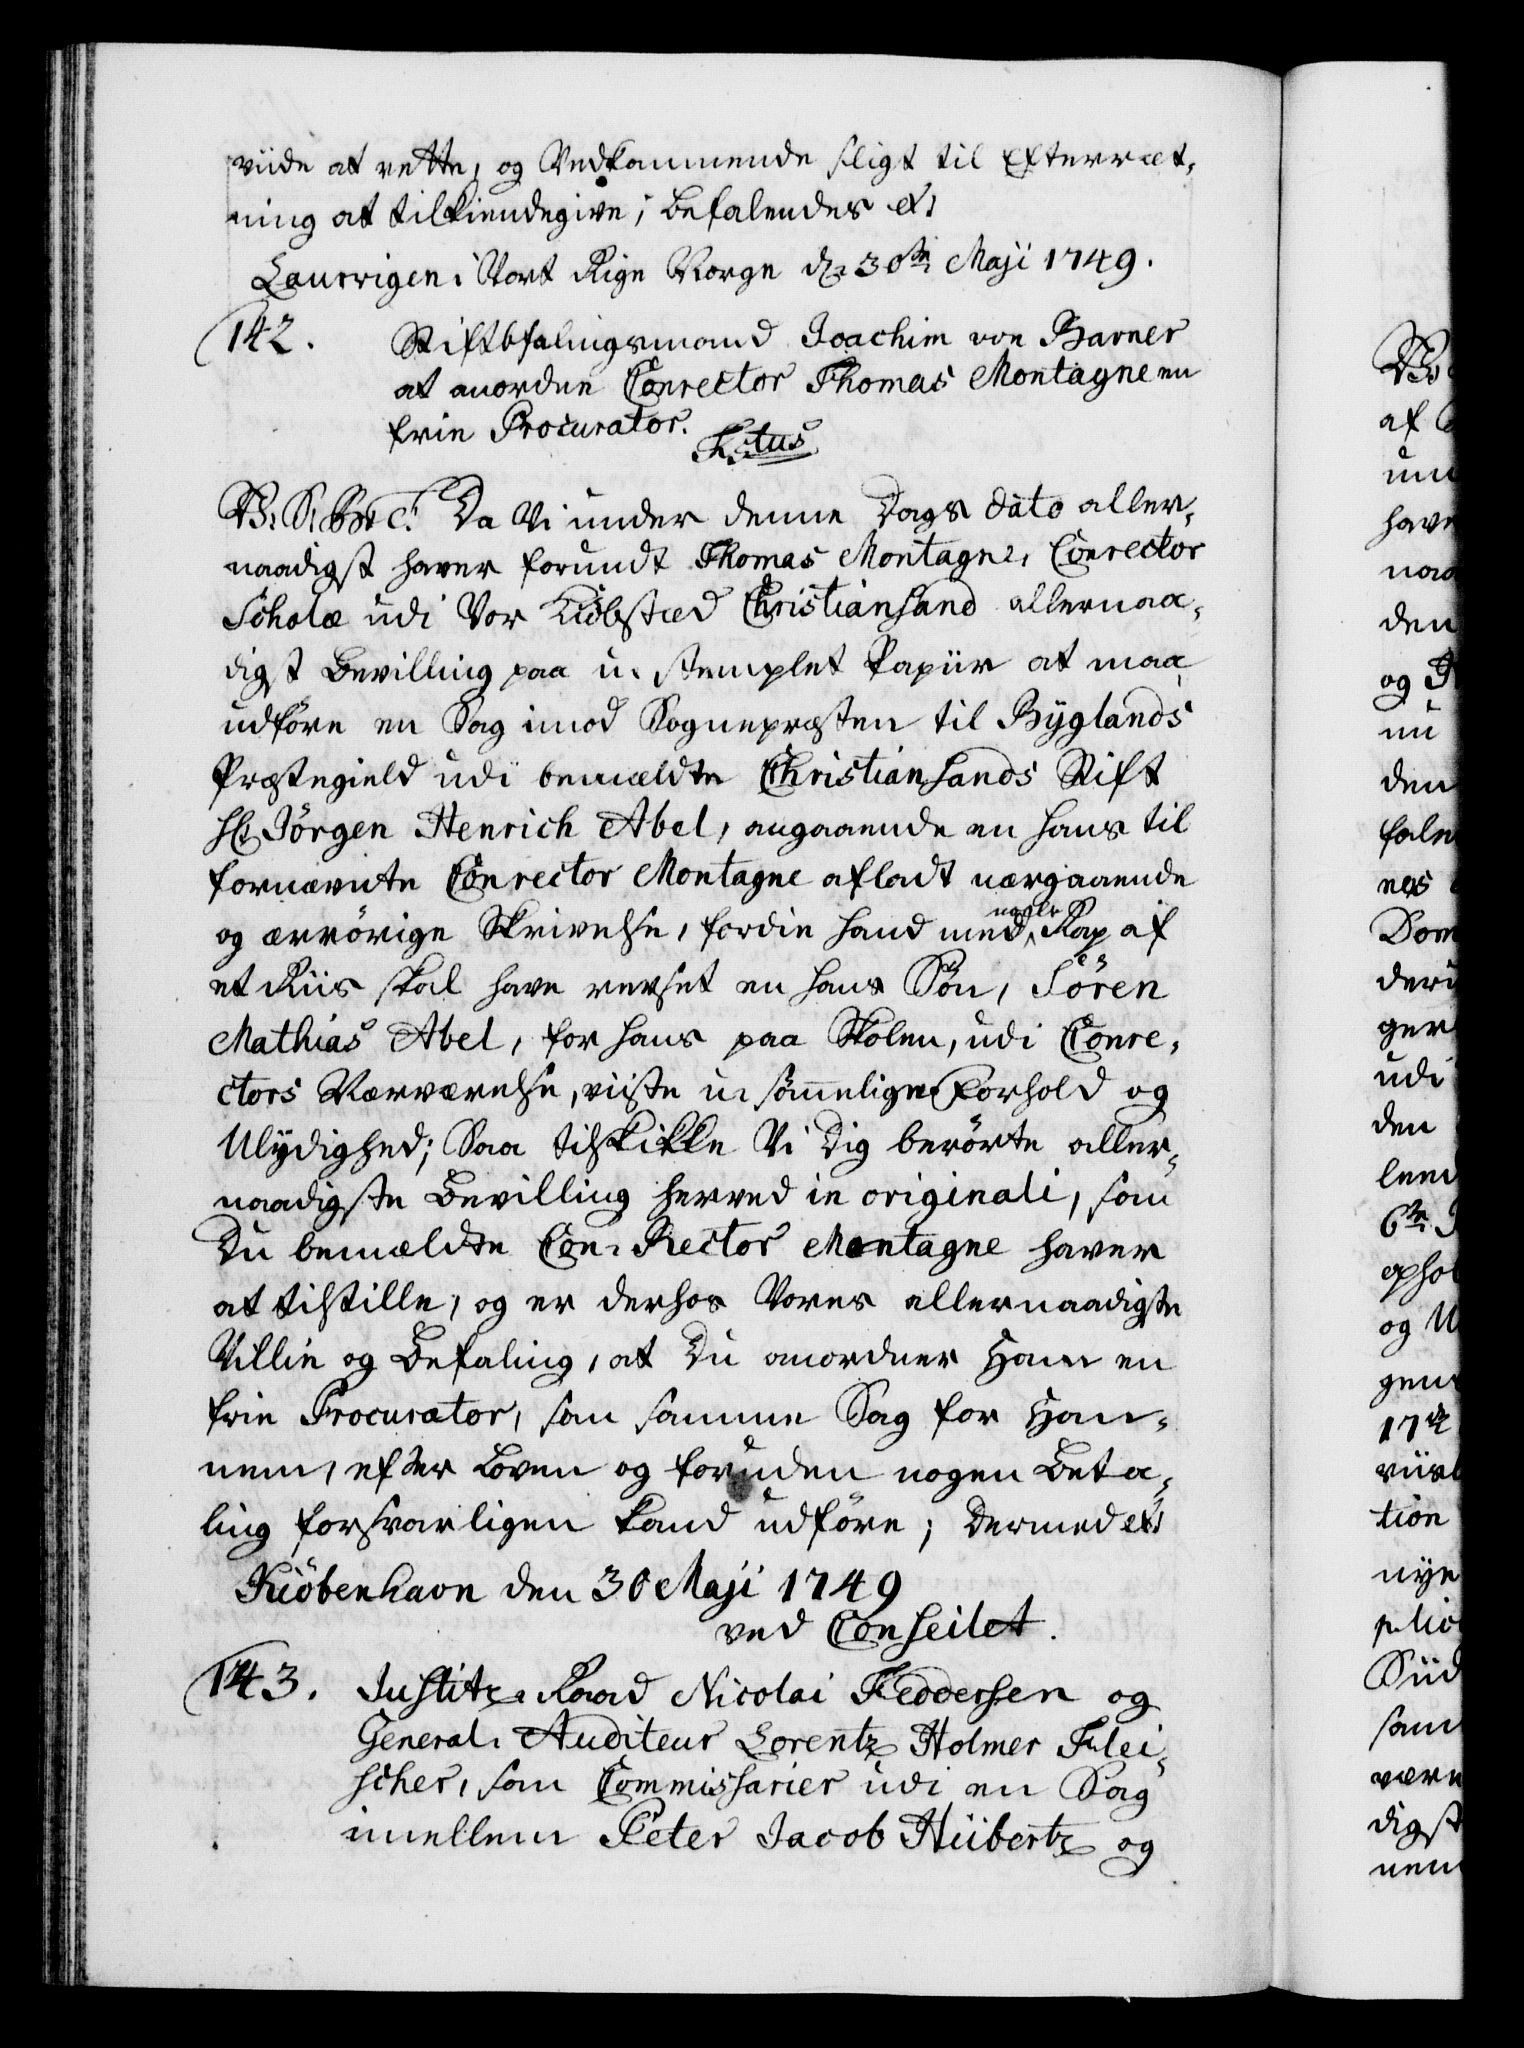 viide at rette, og Vedkommende sligt til Efterræt-
ning at tilkiendegive; befalendes etc
Laurvigen i Vort Rige Norge d: 30te Maji 1749.
142. Stiftbefalingsmand Joachim von Barner
at anordne Conrector Thomas Montagne en
frie Procurator.
F. 5tus
V. S. G. T. Da Vi under denne Dags dato aller-
naadigst haver forundt Thomas Montagne, Conrector
Scholæ udi Vor Kiöbstæd Christiansand allernaa-
digst Bevilling paa u-stemplet Papiir at maa
udföre en Sag imod Sognepræsten til Byglands
Præstegield udi bemældte Christiansands Stift
Hr. Jörgen Henrich Abel, angaaende en hans til
fornævnte Conrector Montagne afladt nærgaaende
og ærrörige Skrivelse, fordie hand med nogle Rap af
et Riis skal have revset en hans Sön, Sören
Mathias Abel, for hans paa Skolen, udi Conre-
ctors Nærværelse, viiste u-sömmelige Forhold og
Ulydighed; Saa tilskikke Vi Dig berörte aller-
naadigste Bevilling herved in originali, som
Du bemældte Con-Rector Montagne haver
at tilstille, og er derhos Vores allernaadigste
Villie og Befaling, at Du anordner Ham en
frie Procurator, som samme Sag for Han-
nem, efter Loven og foruden nogen Beta-
ling forsvarligen kand udföre; Dermed etc
Kiöbenhavn den 30 Maji 1749
ved Conseilet.
143. Justitz-Raad Nicolai Feddersen og
General-Auditeur Lorentz Holmer Flei-
scher, som Commissarier udi en Sag
imellem Peter Jacob Hübertz og